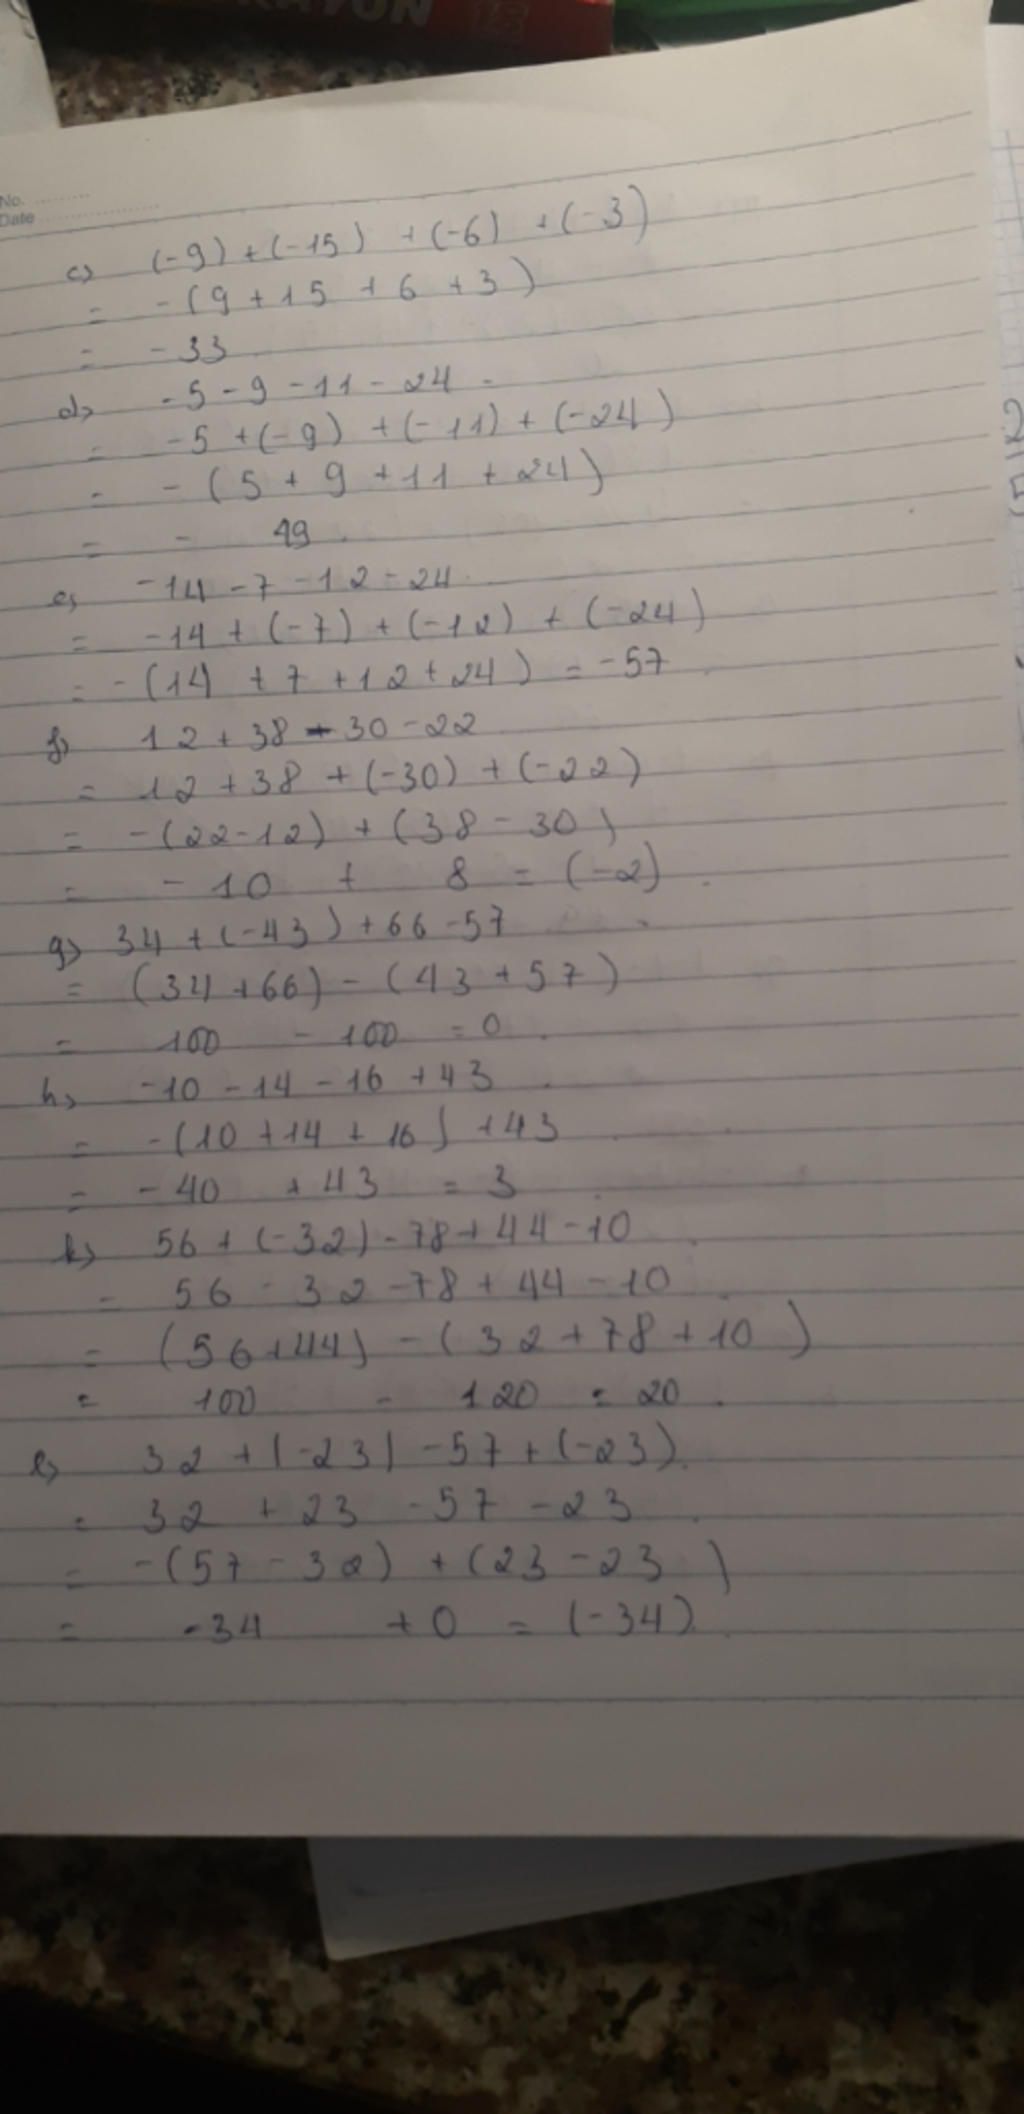 No.
Date
c) (-9) + (-15) + (-6) + (-3)
= -(9 + 15 + 6 + 3)
= -33
d) -5 - 9 - 11 - 24
= -5 + (-9) + (-11) + (-24)
= - (5 + 9 + 11 + 24)
= - 49
e) -14 - 7 - 12 - 24
= -14 + (-7) + (-12) + (-24)
= -(14 + 7 + 12 + 24) = -57
f) 12 + 38 - 30 - 22
= 12 + 38 + (-30) + (-22)
= -(22 - 12) + (38 - 30)
= - 10 + 8 = (-2)
g) 34 + (-43) + 66 - 57
= (34 + 66) - (43 + 57)
= 100 - 100 = 0
h) -10 - 14 - 16 + 43
= -(10 + 14 + 16) + 43
= - 40 + 43 = 3
k) 56 + (-32) - 78 + 44 - 10
= 56 - 32 - 78 + 44 - 10
= (56 + 44) - (32 + 78 + 10)
= 100 - 120 = 20
l) 32 + |-23| - 57 + (-23)
= 32 + 23 - 57 - 23
= -(57 - 32) + (23 - 23)
= -34 + 0 = (-34)